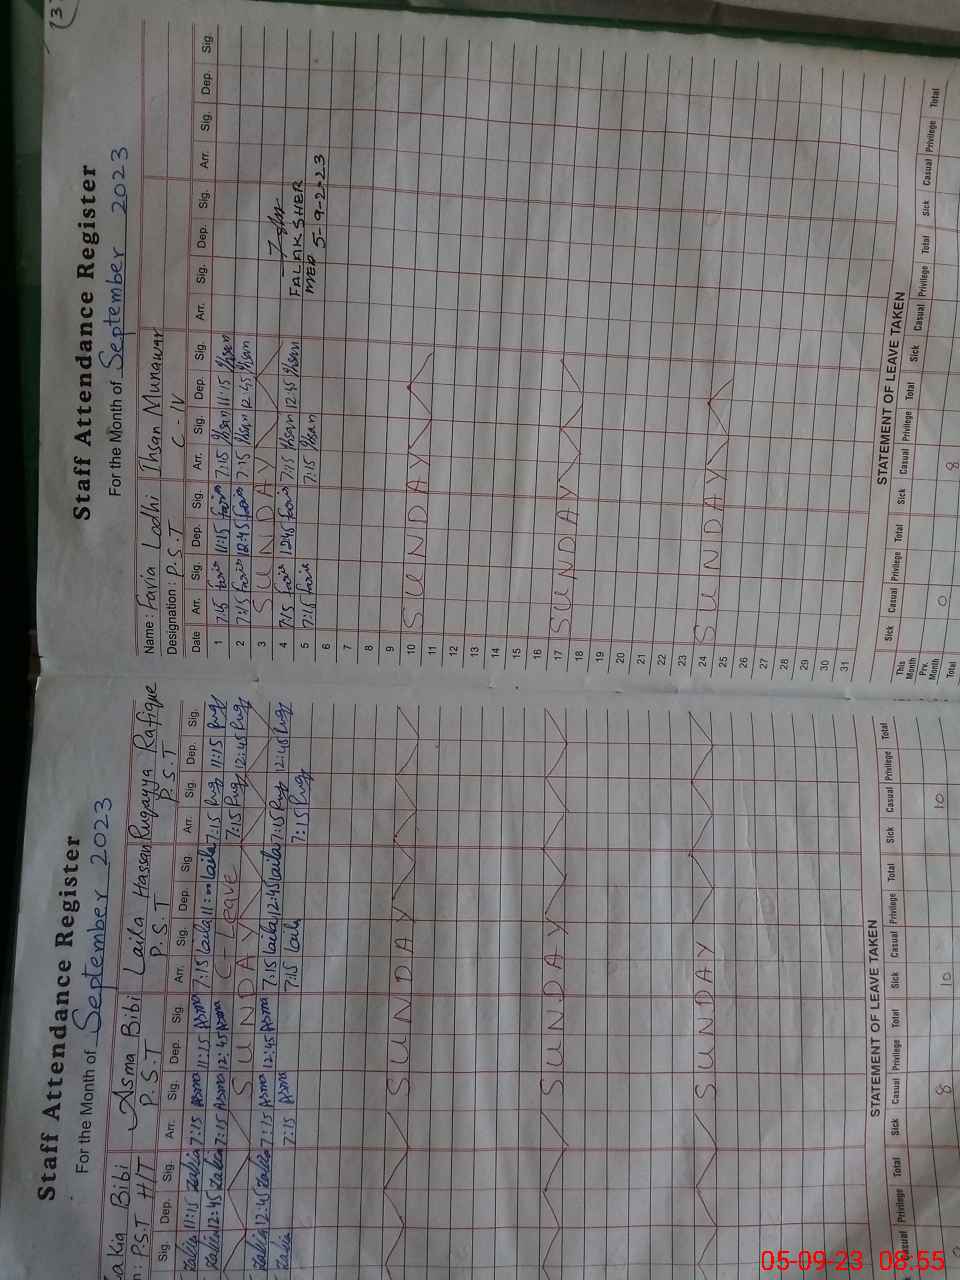 Staff Attendance Register
For the Month of September 2023
Bibi Asma Bibi Laila Hassan Ruqayya Rafique
P.S.T H/T P.S.T P.S.T P.S.T
Sig. Dep. Sig. Arr. Sig. Dep. Sig. Arr. Sig. Dep. Sig. Arr. Sig. Dep. Sig.
Zakia 11:15 Zakia 7:15 Asma 11:15 Asma 7:15 Laila 11:00 Laila 7:15 Ruqy 11:15 Ruqy
Zakia 12:45 Zakia 7:15 Asma 12:45 Asma C-Leave 7:15 Ruqy 12:45 Ruqy
SUNDAY
Zakia 12:45 Zakia 7:15 Asma 12:45 Asma 7:15 Laila 12:45 Laila 7:15 Ruqy 12:45 Ruqy
Zakia 7:15 Asma 7:15 Laila 7:15 Ruqy
SUNDAY
SUNDAY
SUNDAY
STATEMENT OF LEAVE TAKEN
Casual Privilege Total Sick Casual Privilege Total Sick Casual Privilege Total Sick Casual Privilege Total
8 10 10
Staff Attendance Register
For the Month of September 2023
Name: Favia Lodhi Ihsan Munawar
Designation: P.S.T C-IV
Date Arr. Sig. Dep. Sig. Arr. Sig. Dep. Sig. Arr. Sig. Dep. Sig. Arr. Sig. Dep. Sig.
1 7:15 Favia 11:15 Favia 7:15 Ihsan 11:15 Ihsan
2 7:15 Favia 12:45 Favia 7:15 Ihsan 12:45 Ihsan
3 SUNDAY
4 7:15 Favia 12:45 Favia 7:15 Ihsan 12:45 Ihsan
5 7:15 Favia 7:15 Ihsan FALAK SHER
6 MED 5-9-2023
7
8
9
10 SUNDAY
11
12
13
14
15
16
17 SUNDAY
18
19
20
21
22
23
24 SUNDAY
25
26
27
28
29
30
31
STATEMENT OF LEAVE TAKEN
Sick Casual Privilege Total Sick Casual Privilege Total Sick Casual Privilege Total Sick Casual Privilege Total
This Month
Prv. Month 0 8
Total
05-09-23 08:55